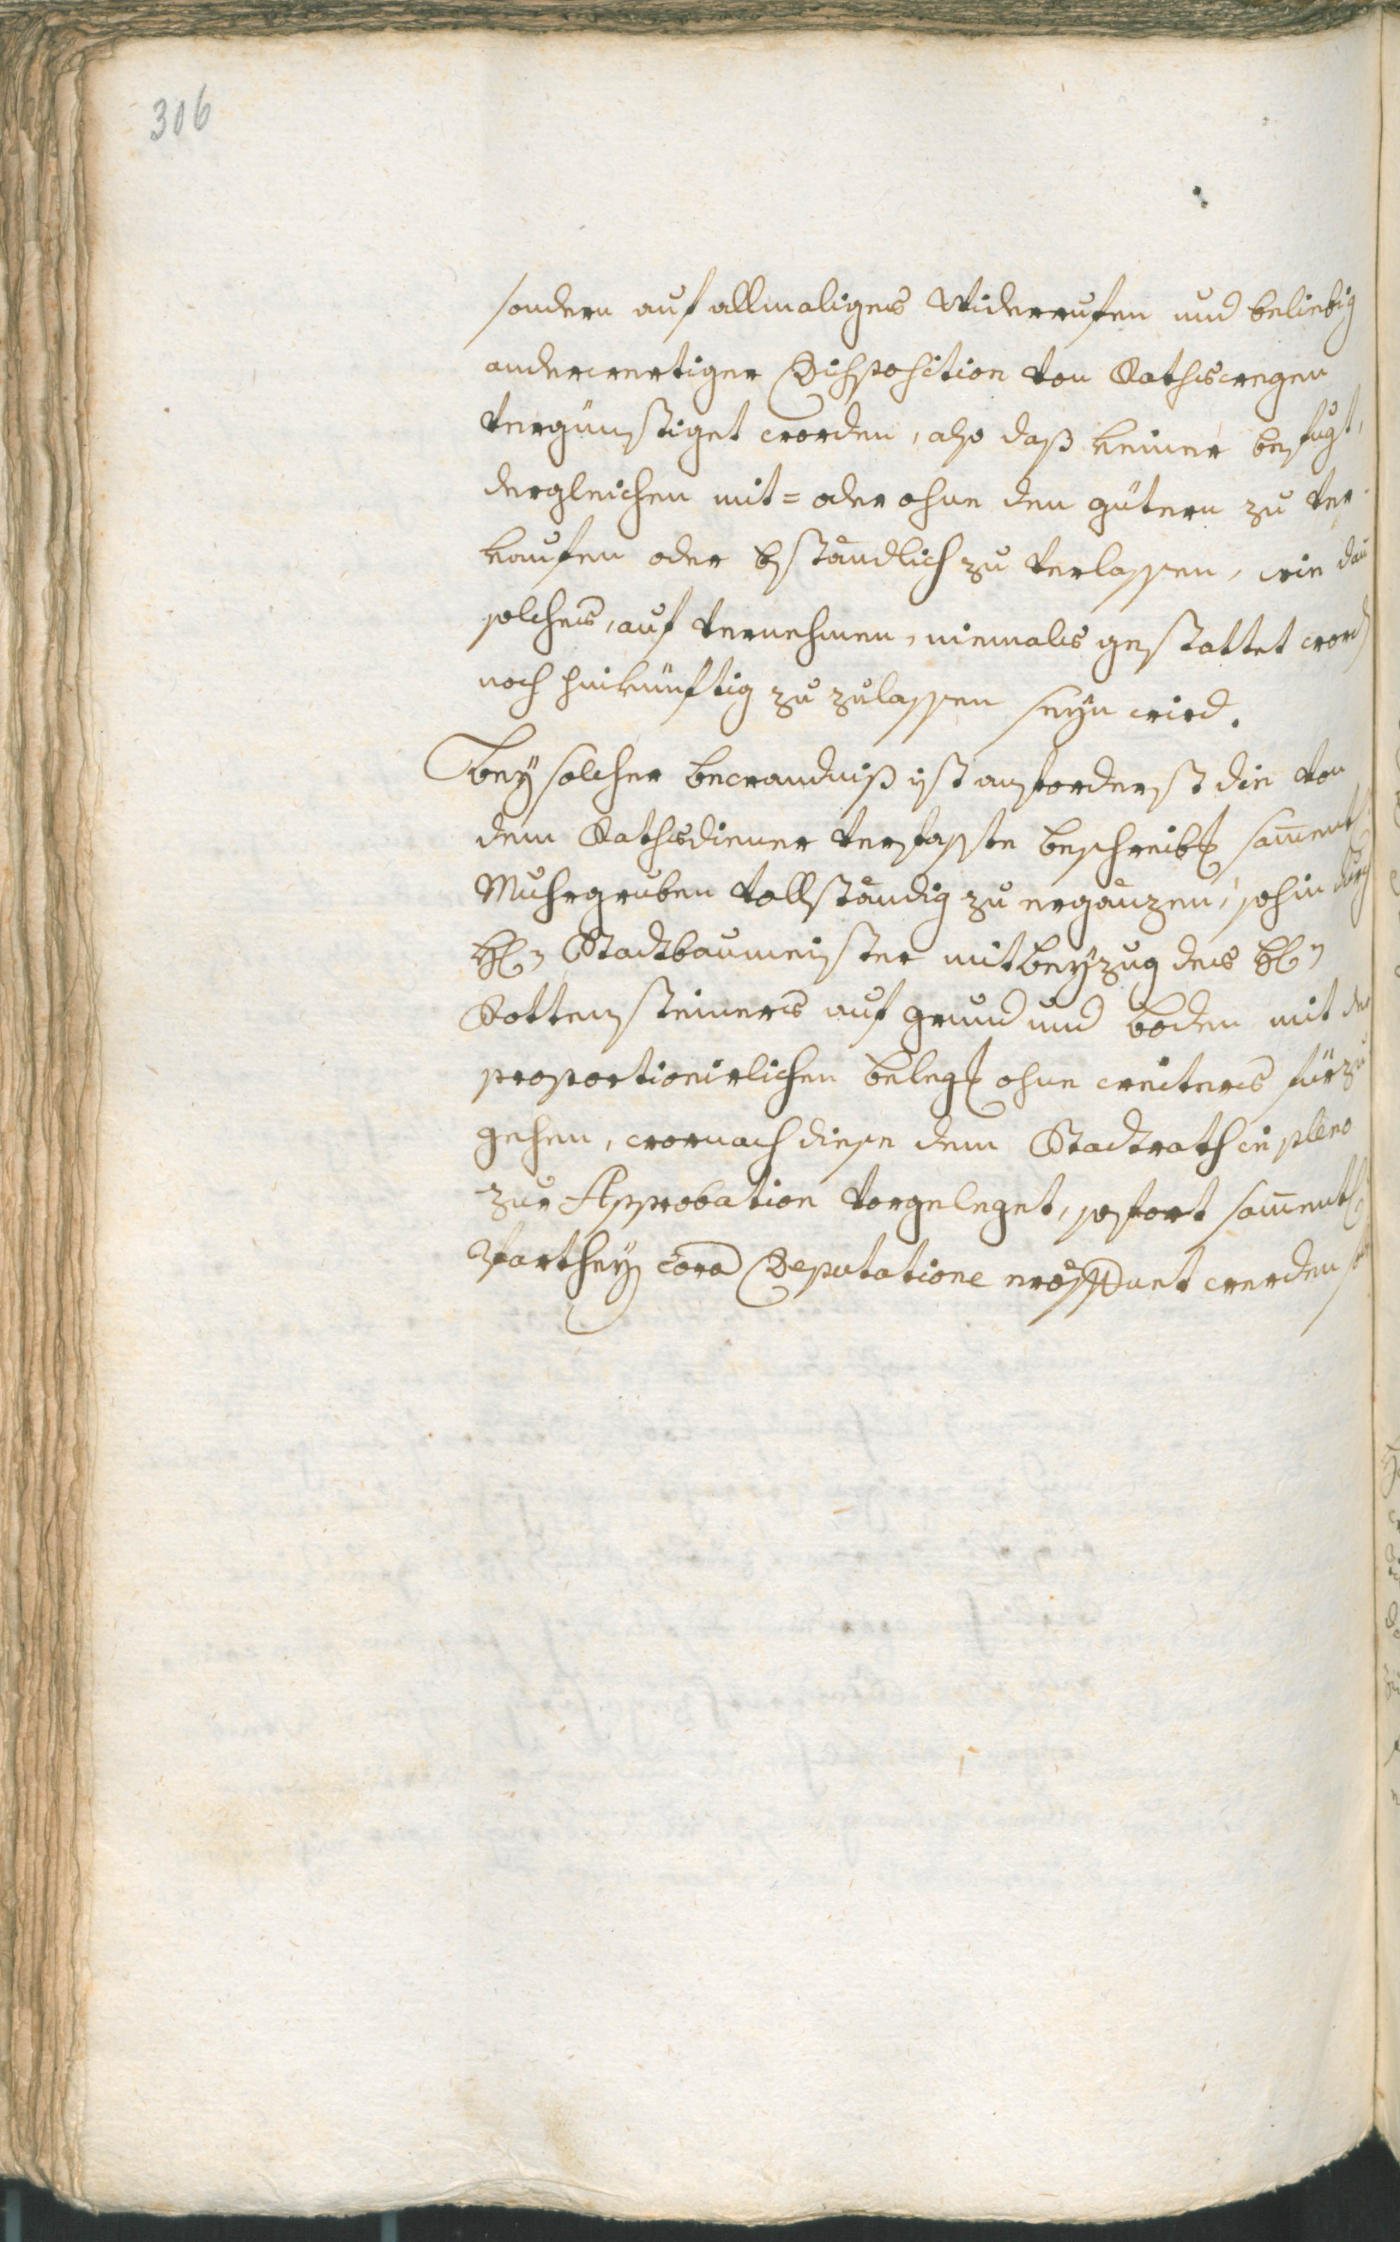 306
sondern auf allmaliges Widerruffen und beliebig
anderwertiger Disposition von Rathswegen
vergünstiget worden, also daß keiner befugt,
dergleichen mit= oder ohne den gütern zu ver-
kauffen oder bständlich zu verlassen, wie dan
solches, auf vernehmen, niemals gestattet word
noch hinkünftig zu zulassen seyn wird.
Bey solcher bewandniß ist anforderst die von
dem Rathsdiener verfasste beschreibg sam̄entl
Muhrgruben vollständig zu ergänzen, sohin durch
H: Stadtbaumeister mit beyzug des H:
Rottensteiners auf grund und boden mit der
proportionirlichen belegg ohne weiters fürzu
gehen, wornach diese dem Stadtrath in pleno
zur Approbation vorgeleget, sofort sam̄entl
Parthey corā Deputatione eröffnet werden